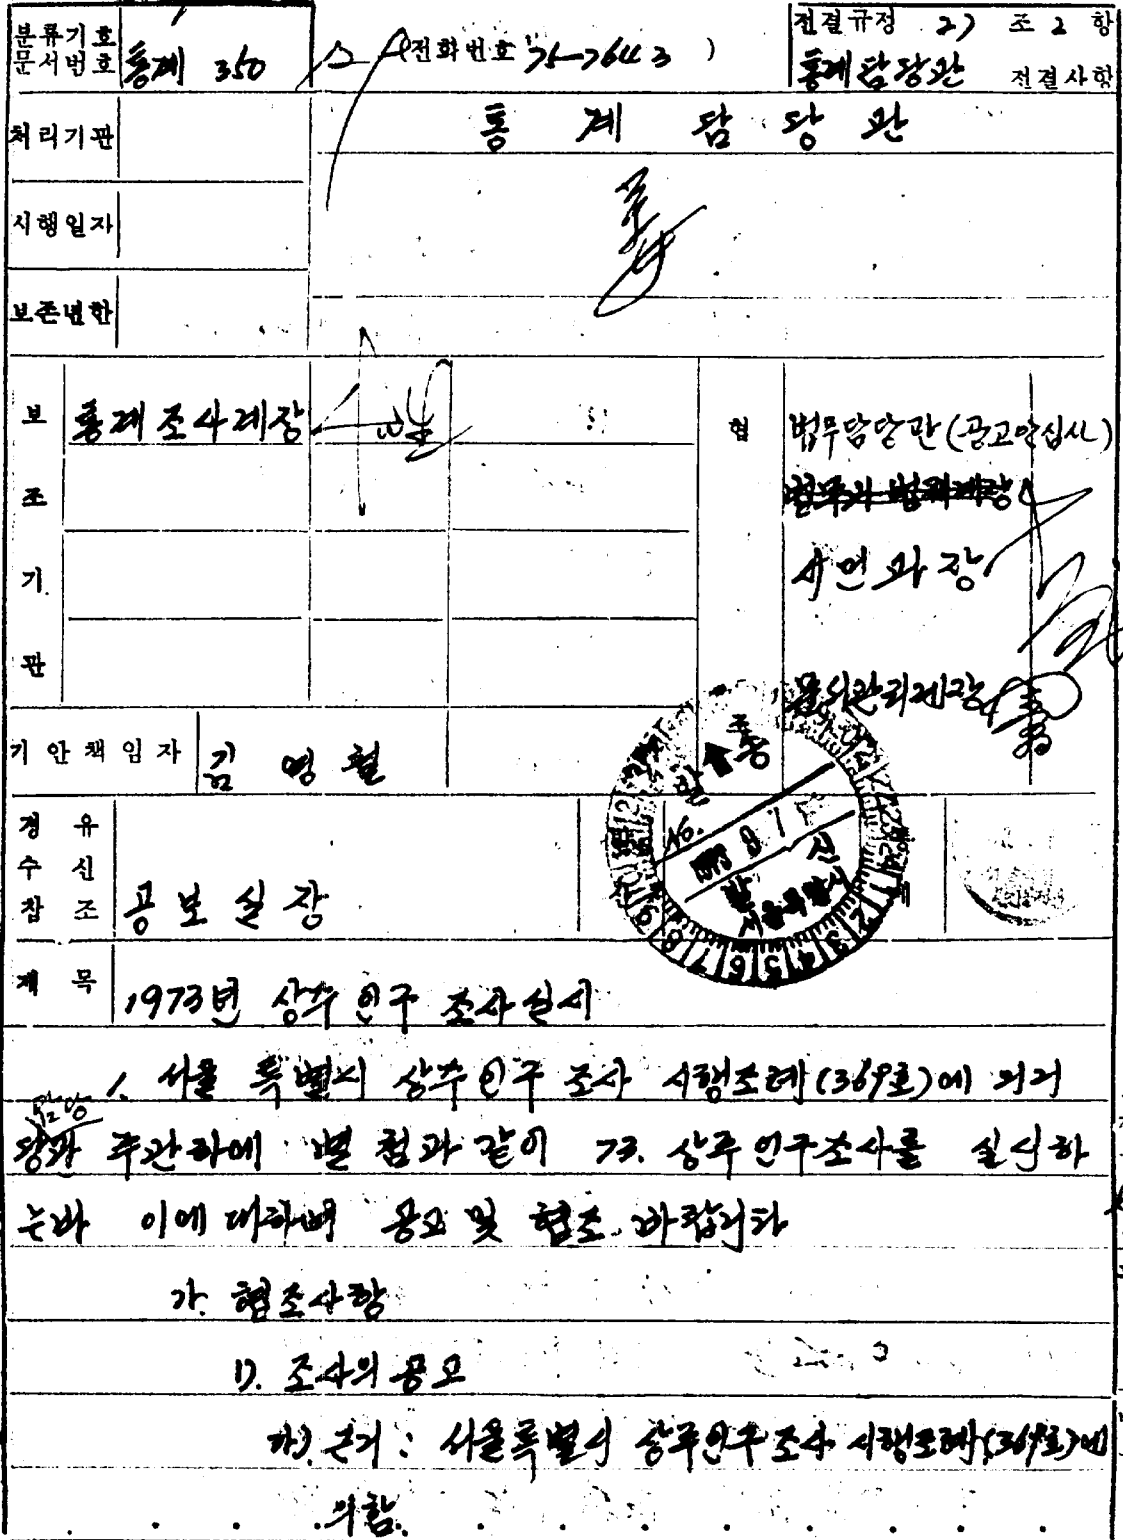 분류기호
문서번호 통계 350 (전화번호 75-7643) 전결규정 27 조 2 항
통계담당관 전결사항
처리기관 통 계 담 당 관
시행일자
보존년한
보조기관 통계조사계장 협 법무담당관(공고안심사)
법무과 법제계장
서면과장
문서관리계장
기안책임자 김 명 철
경유
수신
참조 공보실장
통제
No.
1973 9 7
발신
서울특별시
제목 1973년 상주인구 조사실시
1. 서울특별시 상주인구 조사 시행조례(369호)에 의거
당과 주관하에 별첨과 같이 73. 상주인구조사를 실시하
는바 이에 대하여 공고 및 협조 바랍니다
가. 협조사항
1). 조사의 공고
가). 근거: 서울특별시 상주인구조사 시행조례(369호)에
의함.